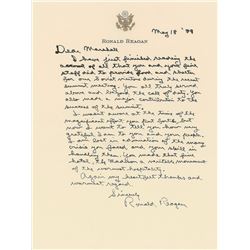 RONALD REAGAN
May 18 '88
Dear Marshall
I have just finished reading the
account of all that you and your fine
staff did to provide food and shelter
for our Soviet visitors during the recent
summit meeting. You all truly served
above and beyond the call of duty. You
also made a major contribution to the
success of the summit.
I wasn't aware at the time of the
magnificent effort you put forth, but
now I want to tell you how very
grateful I am to you and your people.
I am lost in admiration of the many
crisis you faced and your skill in
handling them. You made that fine
hotel, the Madison a veritable monument
of the warmest hospitality.
Again my heartfelt thanks and
warmest regard.
Sincerely
Ronald Reagan